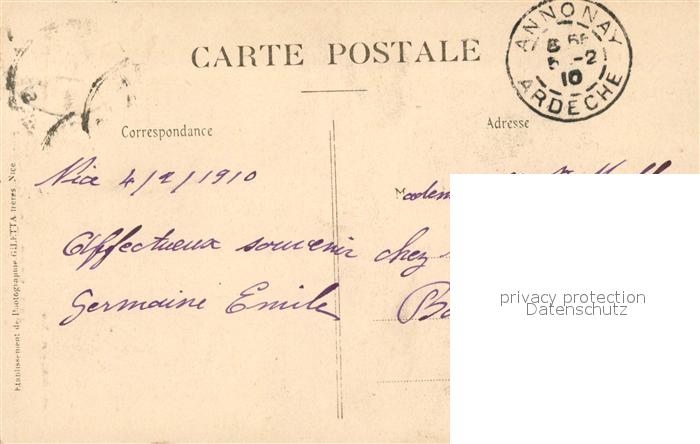 CARTE POSTALE
ANNONAY
5 -2
10
ARDÈCHE
Correspondance
Adresse
Nice 4/2/1910
Affectueux souvenir
Germaine Emile
Madem
chez
privacy protection
Datenschutz
Etablissement de Photographie GILETTA frères, Nice